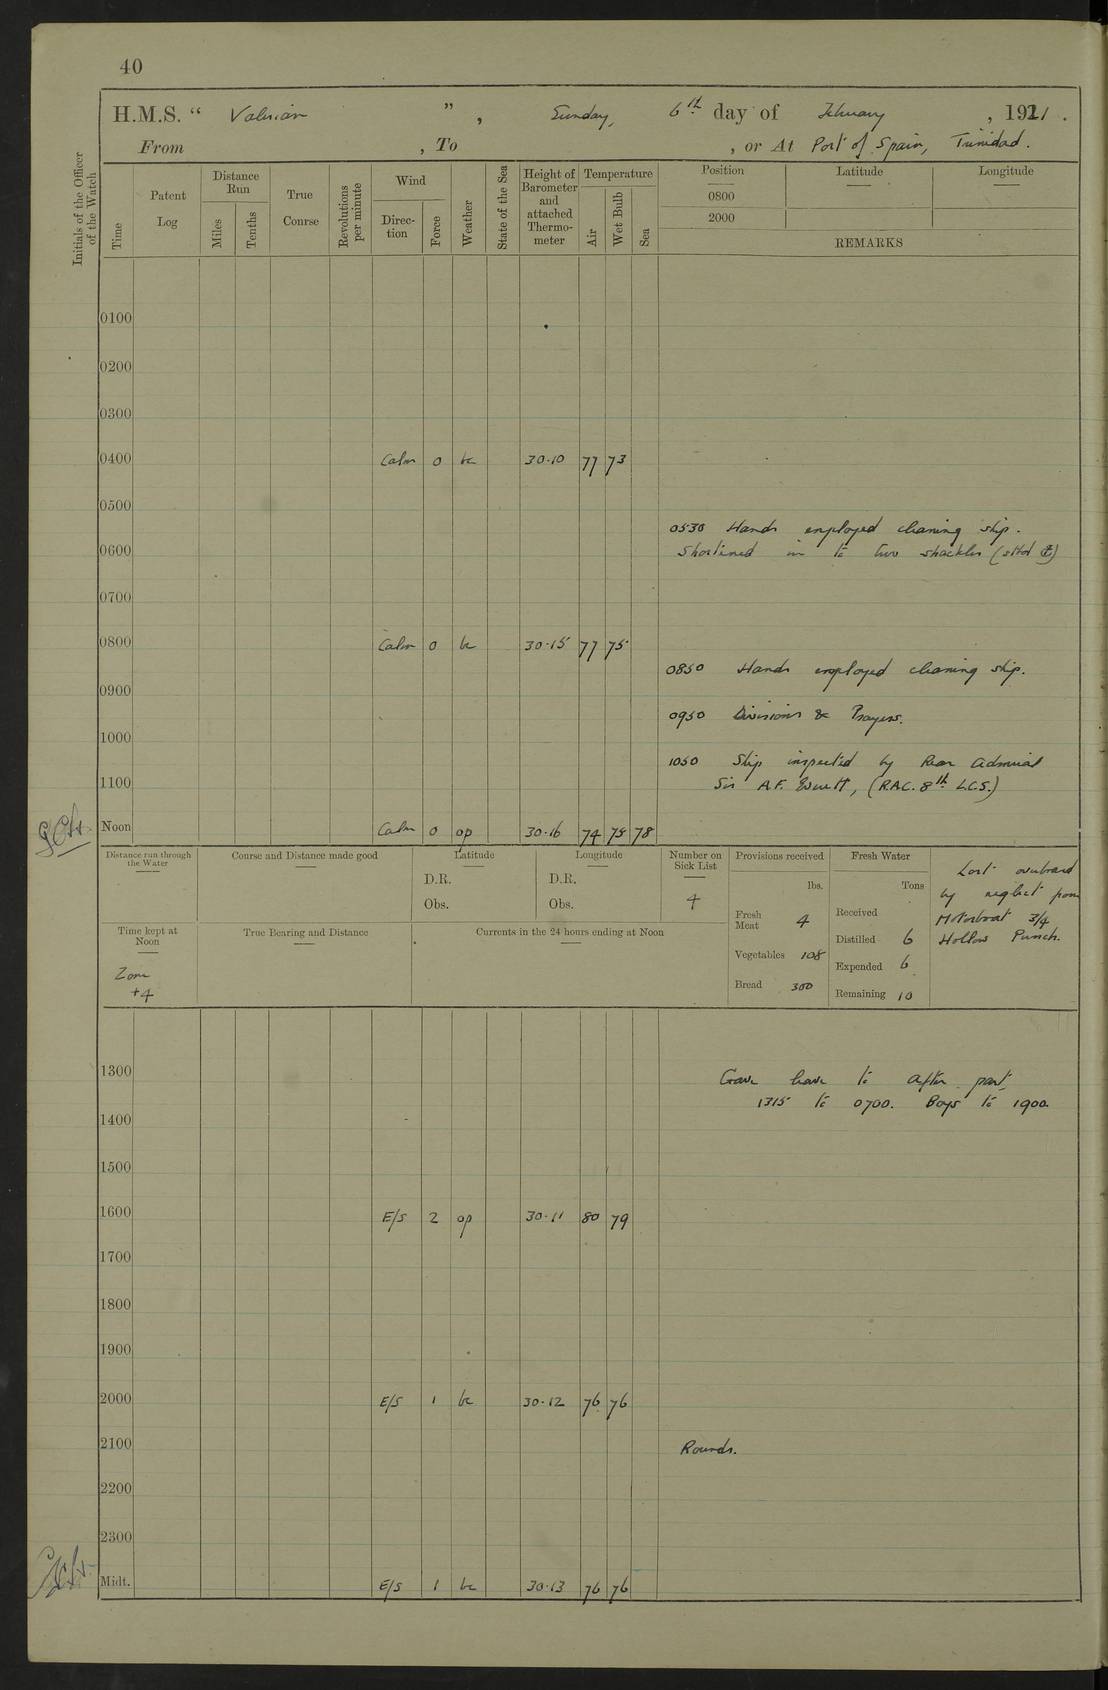 40
H.M.S. " Valerian ", Sunday, 6th day of February, 1921.
From , To , or At Port of Spain, Trinidad.
Initials of the Officer of the Watch
Time
Patent Log
Distance Run
Miles
Tenths
True Course
Revolutions per minute
Wind
Direction
Force
Weather
State of the Sea
Height of Barometer and attached Thermometer
Temperature
Air
Wet Bulb
Sea
Position Latitude Longitude
0800
2000
REMARKS
0100
0200
0300
0400 Calm 0 bc 30.10 77 73
0500
0530 Hands employed cleaning ship.
0600 Shortened in to two shackles (stbd)
0700
0800 Calm 0 bc 30.15 77 75
0850 Hands employed cleaning ship.
0900
0950 Divisions & Prayers.
1000
1050 Ship inspected by Rear Admiral
1100 Sir A.F. Everett, (R.A.C. 8th L.C.S.)
Noon Calm 0 op 30.16 74 75 78
Distance run through the Water
Course and Distance made good
Latitude
D.R.
Obs.
Longitude
D.R.
Obs.
Number on Sick List
4
Provisions received
lbs.
Fresh Meat 4
Vegetables 108
Bread 300
Fresh Water
Tons
Received
Distilled 6
Expended 6
Remaining 10
Lost overboard
by neglect from
Motorboat 3/4
Hollow Punch.
Time kept at Noon
Zone
+4
True Bearing and Distance
Currents in the 24 hours ending at Noon
1300 Gave leave to after part
1315 to 0700. Boys to 1900.
1400
1500
1600 E/S 2 op 30.11 80 79
1700
1800
1900
2000 E/S 1 bc 30.12 76 76
2100 Rounds.
2200
2300
Midt. E/S 1 bc 30.13 76 76